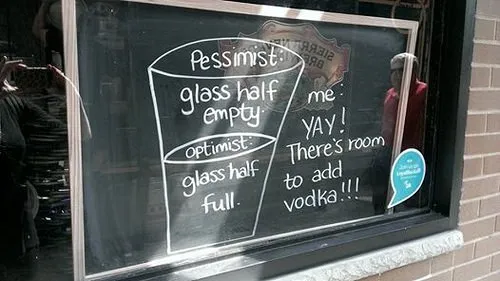 Pessimist:
glass half
empty.
optimist:
glass half
full.
me:
YAY!
There's room
to add
vodka!!!